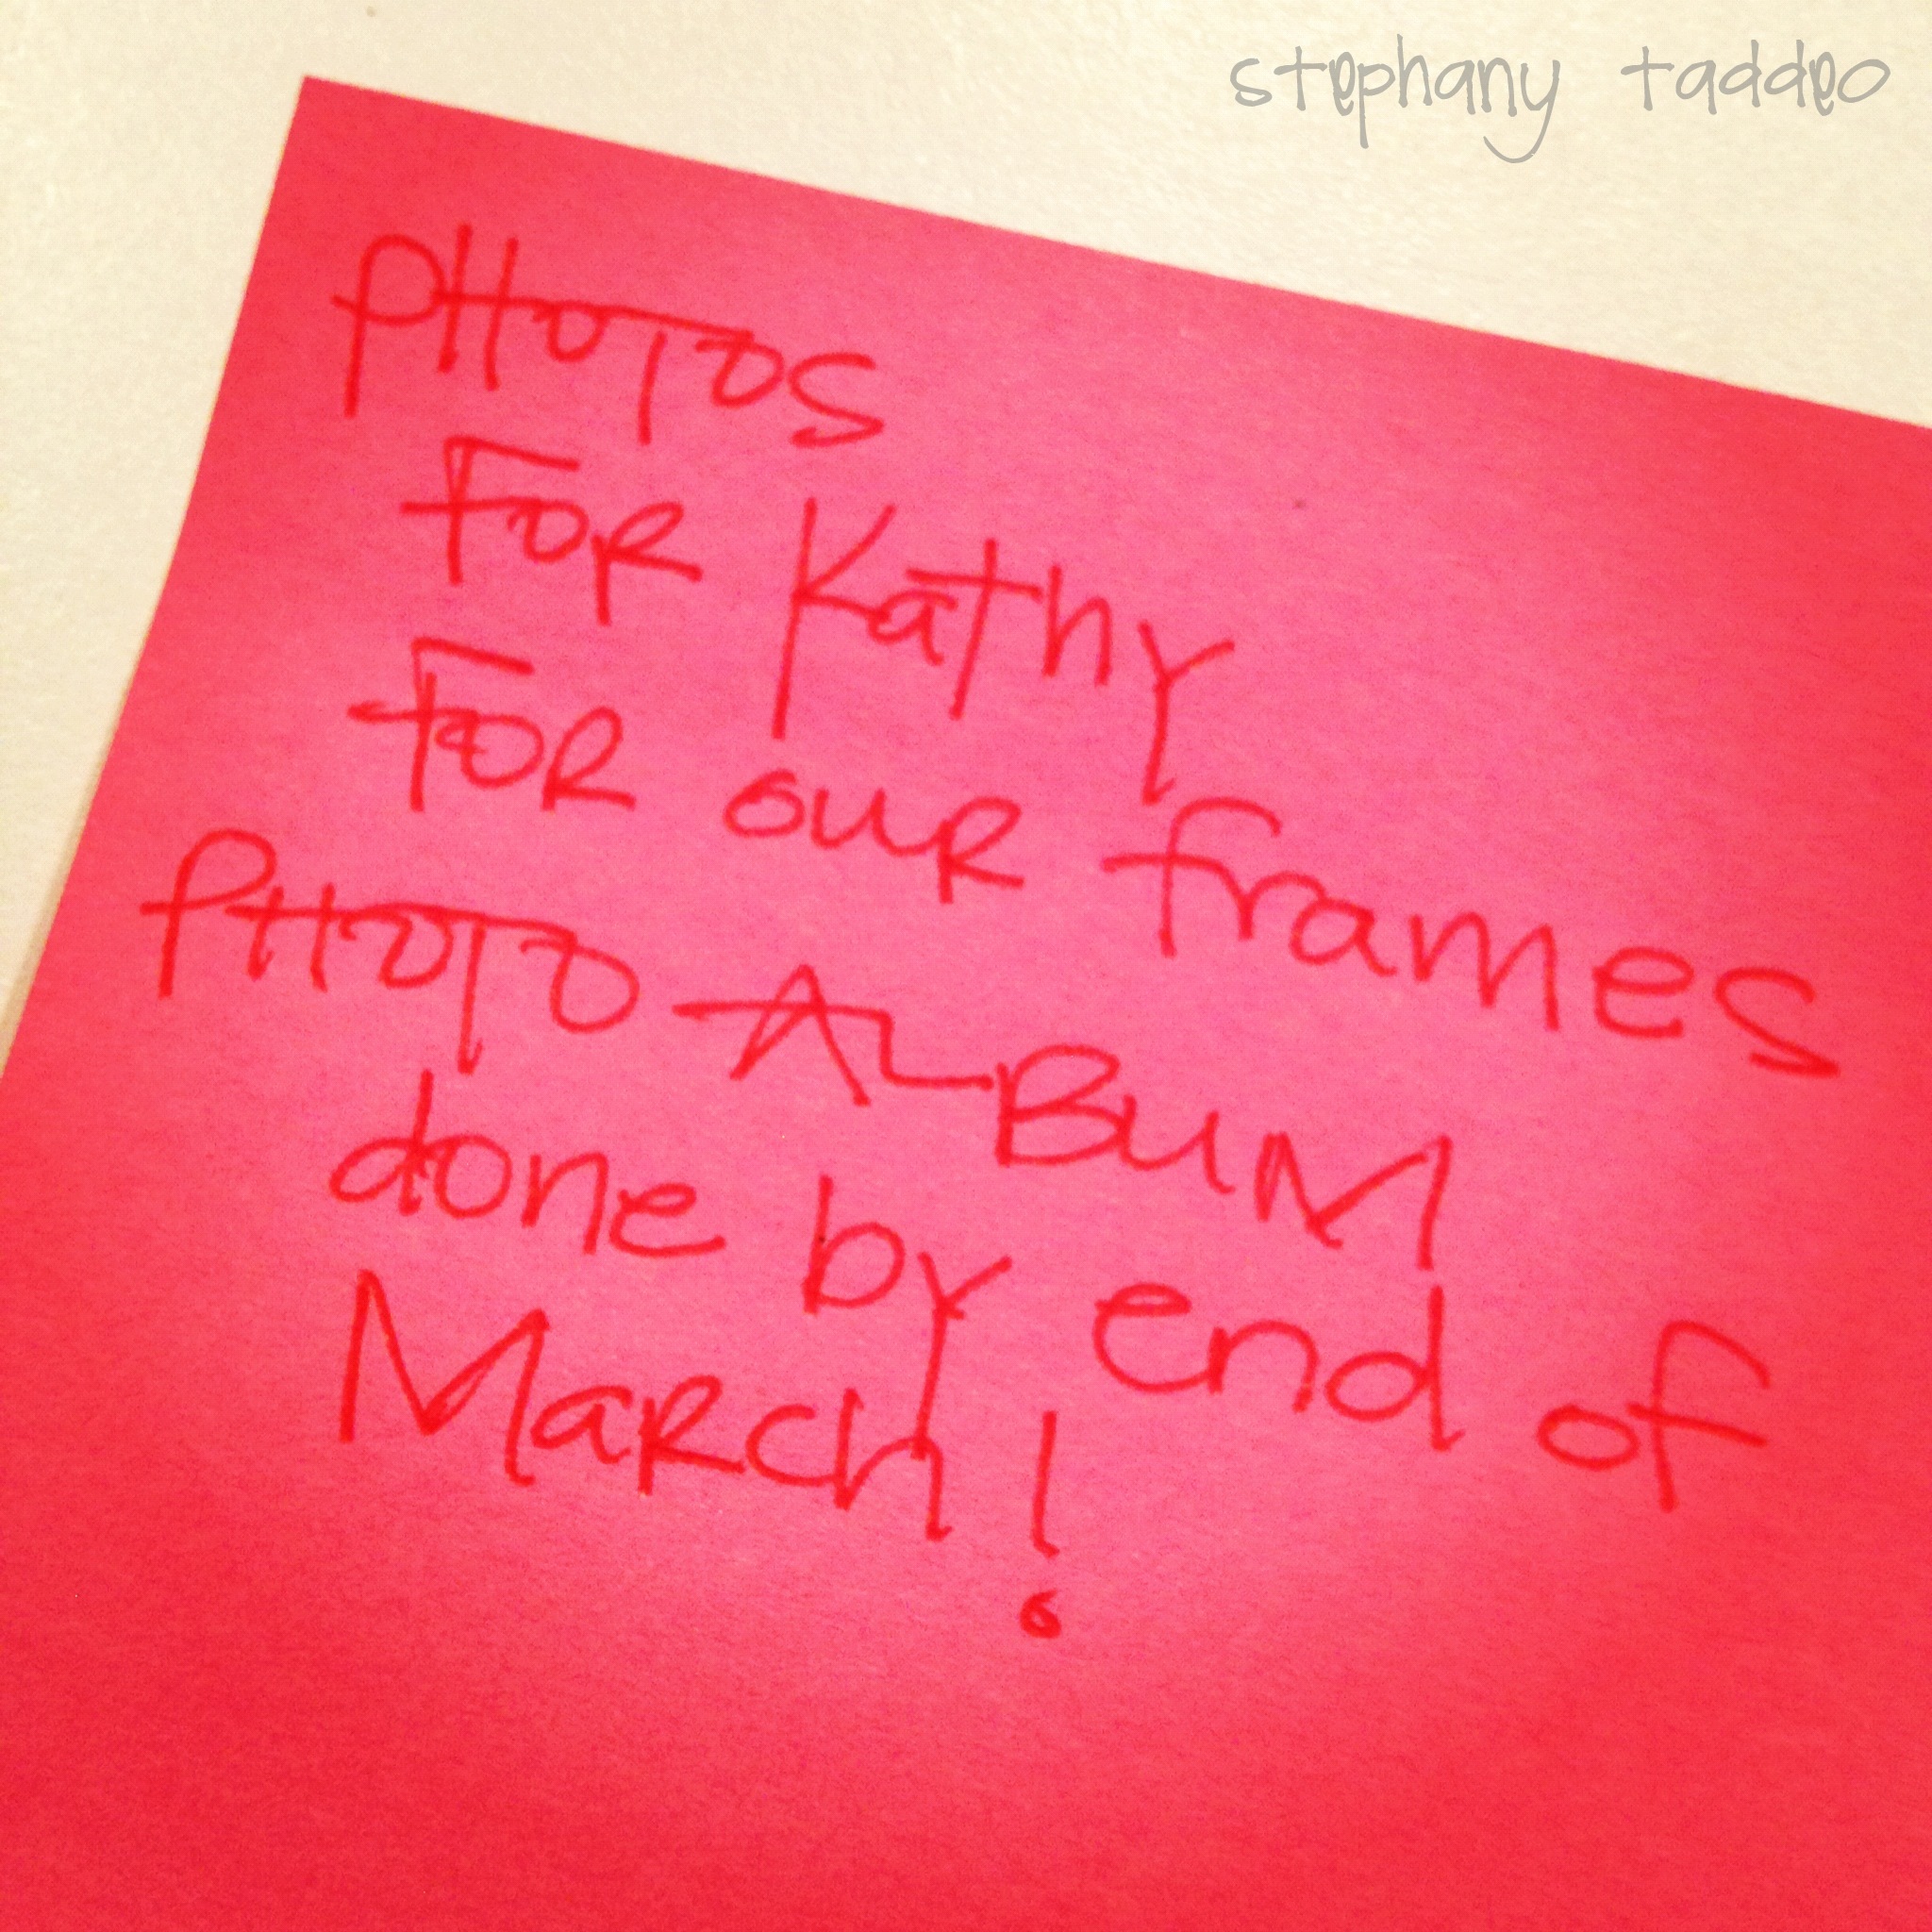 stephany taddeo
PHOTOS
FOR Kathy
FOR OUR frames
PHOTO ALBUM
done by end of
March!